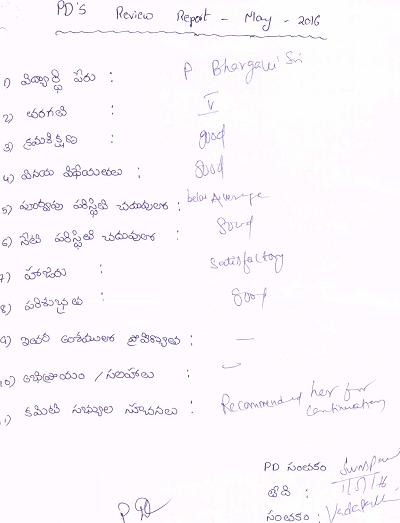 PD's Review Report - May - 2016
1) విద్యార్థి పేరు : P Bhargavi Sri
2) తరగతి : V
3) క్రమశిక్షణ : good
4) వినయ విధేయతలు : Good
5) పూర్వపు పరిస్థితి చదువులో : below Average
6) నేటి పరిస్థితి చదువులో : Good
7) హాజరు : Satisfactory
8) పరిశుభ్రత : Good
9) ఇతర అంశములలో ప్రావీణ్యాలు : —
10) అభిప్రాయం / సలహాలు :
11) కమిటీ సభ్యుల సూచనలు : Recommended her for continuation
PD సంతకం
తేది :
సంతకం :